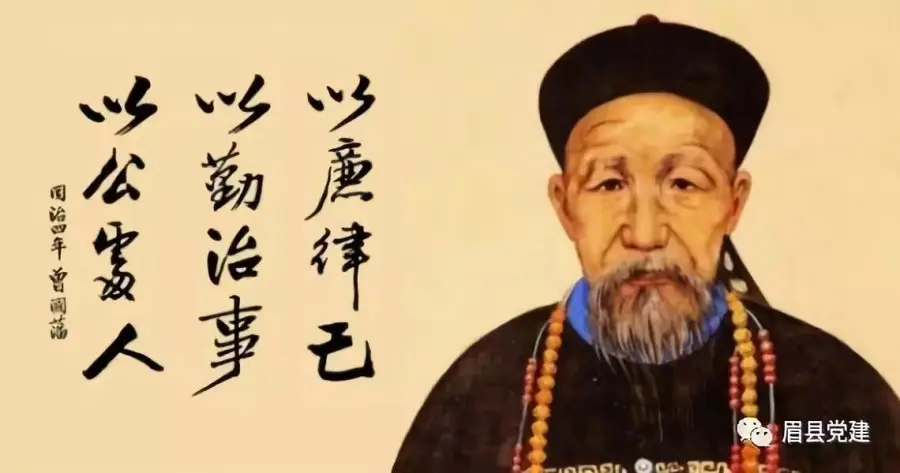 以廉律己
以勤治事
以公處人
同治四年 曾國藩
眉县党建